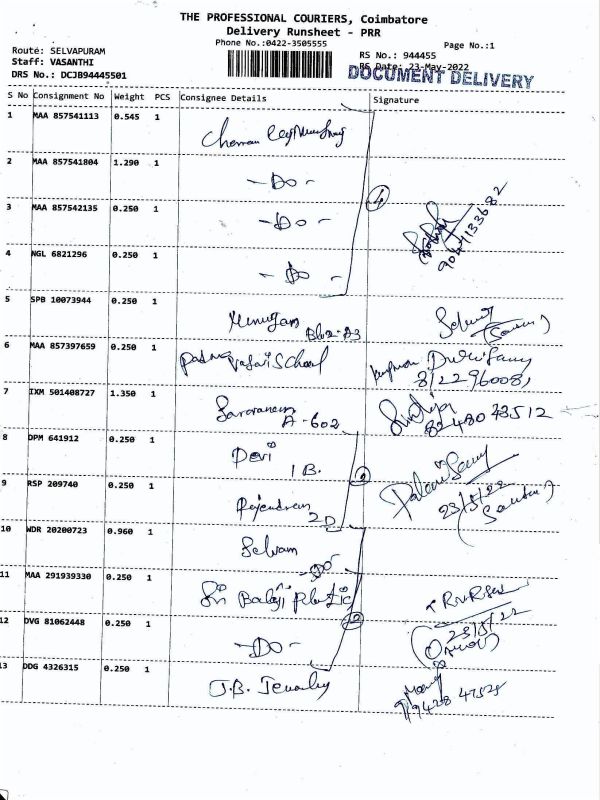 THE PROFESSIONAL COURIERS, Coimbatore
Delivery Runsheet - PRR
Phone No.:0422-3505555
Page No.:1
Route: SELVAPURAM
Staff: VASANTHI
DRS No.: DCJB94445501
RS No.: 944455
RS Date: 23-May-2022
DOCUMENT DELIVERY
S No Consignment No Weight PCS Consignee Details Signature
1 MAA 857541113 0.545 1
2 MAA 857541804 1.290 1 -Do-
3 MAA 857542135 0.250 1 -Do-
4 NGL 6821296 0.250 1 -Do-
4
5 SPB 10073944 0.250 1 Murugan
6 MAA 857397659 0.250 1 School
7 IXM 501408727 1.350 1 Saravanan
A-602
8 DPM 641912 0.250 1 Devi
1 B.
9 RSP 209740 0.250 1 Rajendran
2D
23/5/22
10 WDR 20200723 0.960 1 Selvam
-Do-
11 MAA 291939330 0.250 1 Sri Balaji Plastic
23/5/22
12 DVG 81062448 0.250 1 -Do-
13 DDG 4326315 0.250 1 J.B.